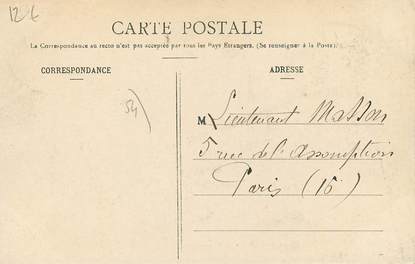 12 €
CARTE POSTALE
La Correspondance au recto n'est pas acceptée par tous les Pays Etrangers. (Se renseigner à la Poste).
CORRESPONDANCE
ADRESSE
54)
M Lieutenant Masson
5 rue de l'assomption
Paris (16)